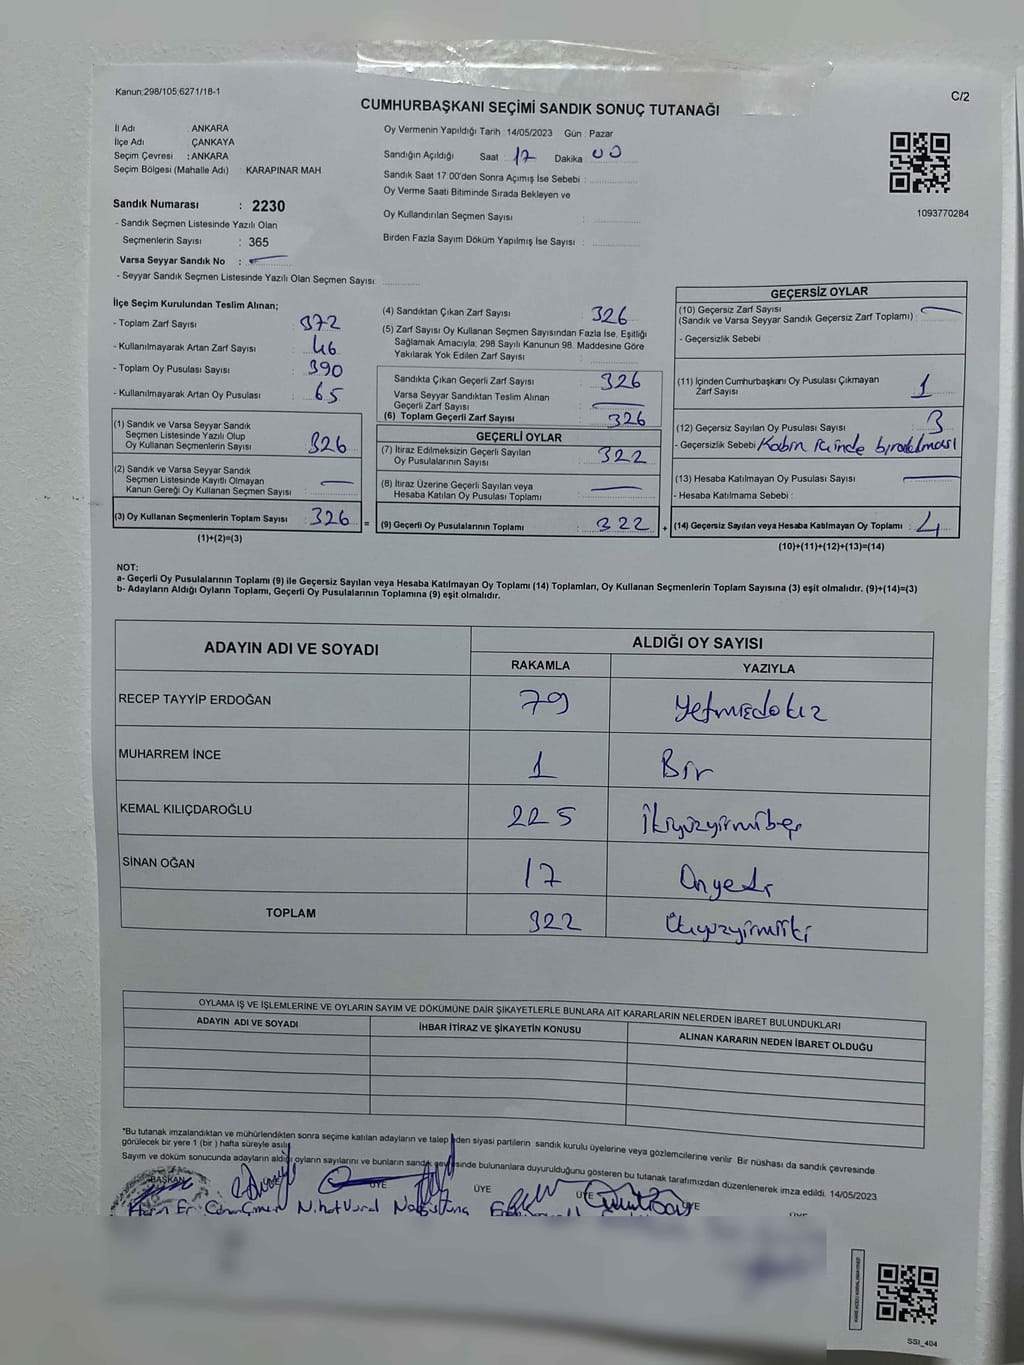 Kanun:298/105;6271/18-1
C/2
CUMHURBAŞKANI SEÇİMİ SANDIK SONUÇ TUTANAĞI
İl Adı : ANKARA
İlçe Adı ÇANKAYA
Seçim Çevresi : ANKARA
Seçim Bölgesi (Mahalle Adı) KARAPINAR MAH
Oy Vermenin Yapıldığı Tarih : 14/05/2023 Gün : Pazar
Sandığın Açıldığı Saat 17 Dakika 00
Sandık Saat 17:00'den Sonra Açımış İse Sebebi :
Oy Verme Saati Bitiminde Sırada Bekleyen ve
Oy Kullandırılan Seçmen Sayısı :
Birden Fazla Sayım Döküm Yapılmış İse Sayısı :
1093770284
Sandık Numarası : 2230
- Sandık Seçmen Listesinde Yazılı Olan
Seçmenlerin Sayısı : 365
Varsa Seyyar Sandık No : -
- Seyyar Sandık Seçmen Listesinde Yazılı Olan Seçmen Sayısı:
İlçe Seçim Kurulundan Teslim Alınan;
- Toplam Zarf Sayısı : 372
- Kullanılmayarak Artan Zarf Sayısı : 46
- Toplam Oy Pusulası Sayısı : 390
- Kullanılmayarak Artan Oy Pusulası : 65
(1) Sandık ve Varsa Seyyar Sandık
Seçmen Listesinde Yazılı Olup
Oy Kullanan Seçmenlerin Sayısı : 326
(2) Sandık ve Varsa Seyyar Sandık
Seçmen Listesinde Kayıtlı Olmayan
Kanun Gereği Oy Kullanan Seçmen Sayısı : -
(3) Oy Kullanan Seçmenlerin Toplam Sayısı : 326 =
(1)+(2)=(3)
(4) Sandıktan Çıkan Zarf Sayısı : 326
(5) Zarf Sayısı Oy Kullanan Seçmen Sayısından Fazla İse, Eşitliği
Sağlamak Amacıyla; 298 Sayılı Kanunun 98. Maddesine Göre
Yakılarak Yok Edilen Zarf Sayısı :
Sandıkta Çıkan Geçerli Zarf Sayısı : 326
Varsa Seyyar Sandıktan Teslim Alınan
Geçerli Zarf Sayısı : -
(6) Toplam Geçerli Zarf Sayısı : 326
GEÇERLİ OYLAR
(7) İtiraz Edilmeksizin Geçerli Sayılan
Oy Pusulalarının Sayısı : 322
(8) İtiraz Üzerine Geçerli Sayılan veya
Hesaba Katılan Oy Pusulası Toplamı : -
(9) Geçerli Oy Pusulalarının Toplamı : 322 +
GEÇERSİZ OYLAR
(10) Geçersiz Zarf Sayısı
(Sandık ve Varsa Seyyar Sandık Geçersiz Zarf Toplamı) : -
- Geçersizlik Sebebi
(11) İçinden Cumhurbaşkanı Oy Pusulası Çıkmayan
Zarf Sayısı 1
(12) Geçersiz Sayılan Oy Pusulası Sayısı : 3
- Geçersizlik Sebebi Kabin içinde bırakılması
(13) Hesaba Katılmayan Oy Pusulası Sayısı : -
- Hesaba Katılmama Sebebi :
(14) Geçersiz Sayılan veya Hesaba Katılmayan Oy Toplamı : 4
(10)+(11)+(12)+(13)=(14)
NOT:
a- Geçerli Oy Pusulalarının Toplamı (9) ile Geçersiz Sayılan veya Hesaba Katılmayan Oy Toplamı (14) Toplamları, Oy Kullanan Seçmenlerin Toplam Sayısına (3) eşit olmalıdır. (9)+(14)=(3)
b- Adayların Aldığı Oyların Toplamı, Geçerli Oy Pusulalarının Toplamına (9) eşit olmalıdır.
ADAYIN ADI VE SOYADI
ALDIĞI OY SAYISI
RAKAMLA YAZIYLA
RECEP TAYYİP ERDOĞAN 79 Yetmişdokuz
MUHARREM İNCE 1 Bir
KEMAL KILIÇDAROĞLU 225 İkiyüzyirmibeş
SİNAN OĞAN 17 Onyedi
TOPLAM 322 Üçyüzyirmiiki
OYLAMA İŞ VE İŞLEMLERİNE VE OYLARIN SAYIM VE DÖKÜMÜNE DAİR ŞİKAYETLERLE BUNLARA AİT KARARLARIN NELERDEN İBARET BULUNDUKLARI
ADAYIN ADI VE SOYADI
İHBAR İTİRAZ VE ŞİKAYETİN KONUSU
ALINAN KARARIN NEDEN İBARET OLDUĞU
*Bu tutanak imzalandıktan ve mühürlendikten sonra seçime katılan adayların ve talep eden siyasi partilerin sandık kurulu üyelerine veya gözlemcilerine verilir. Bir nüshası da sandık çevresinde
görülecek bir yere 1 (bir ) hafta süreyle asılır.
Sayım ve döküm sonucunda adayların aldığı oyların sayılarını ve bunların sandık çevresinde bulunanlara duyurulduğunu gösteren bu tutanak tarafımızdan düzenlenerek imza edildi. 14/05/2023
BAŞKAN ÜYE ÜYE ÜYE ÜYE
SSI_404